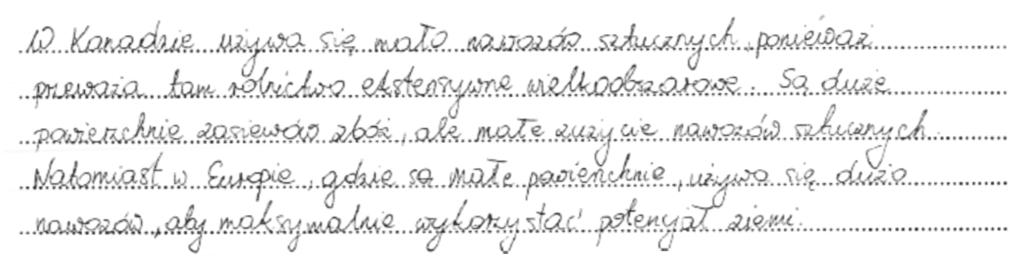 W Kanadzie używa się mało nawozów sztucznych, ponieważ
przeważa tam rolnictwo ekstensywne wielkoobszarowe. Są duże
powierzchnie zasiewów zbóż, ale małe zużycie nawozów sztucznych.
Natomiast w Europie, gdzie są małe powierzchnie, używa się dużo
nawozów, aby maksymalnie wykorzystać potencjał ziemi.